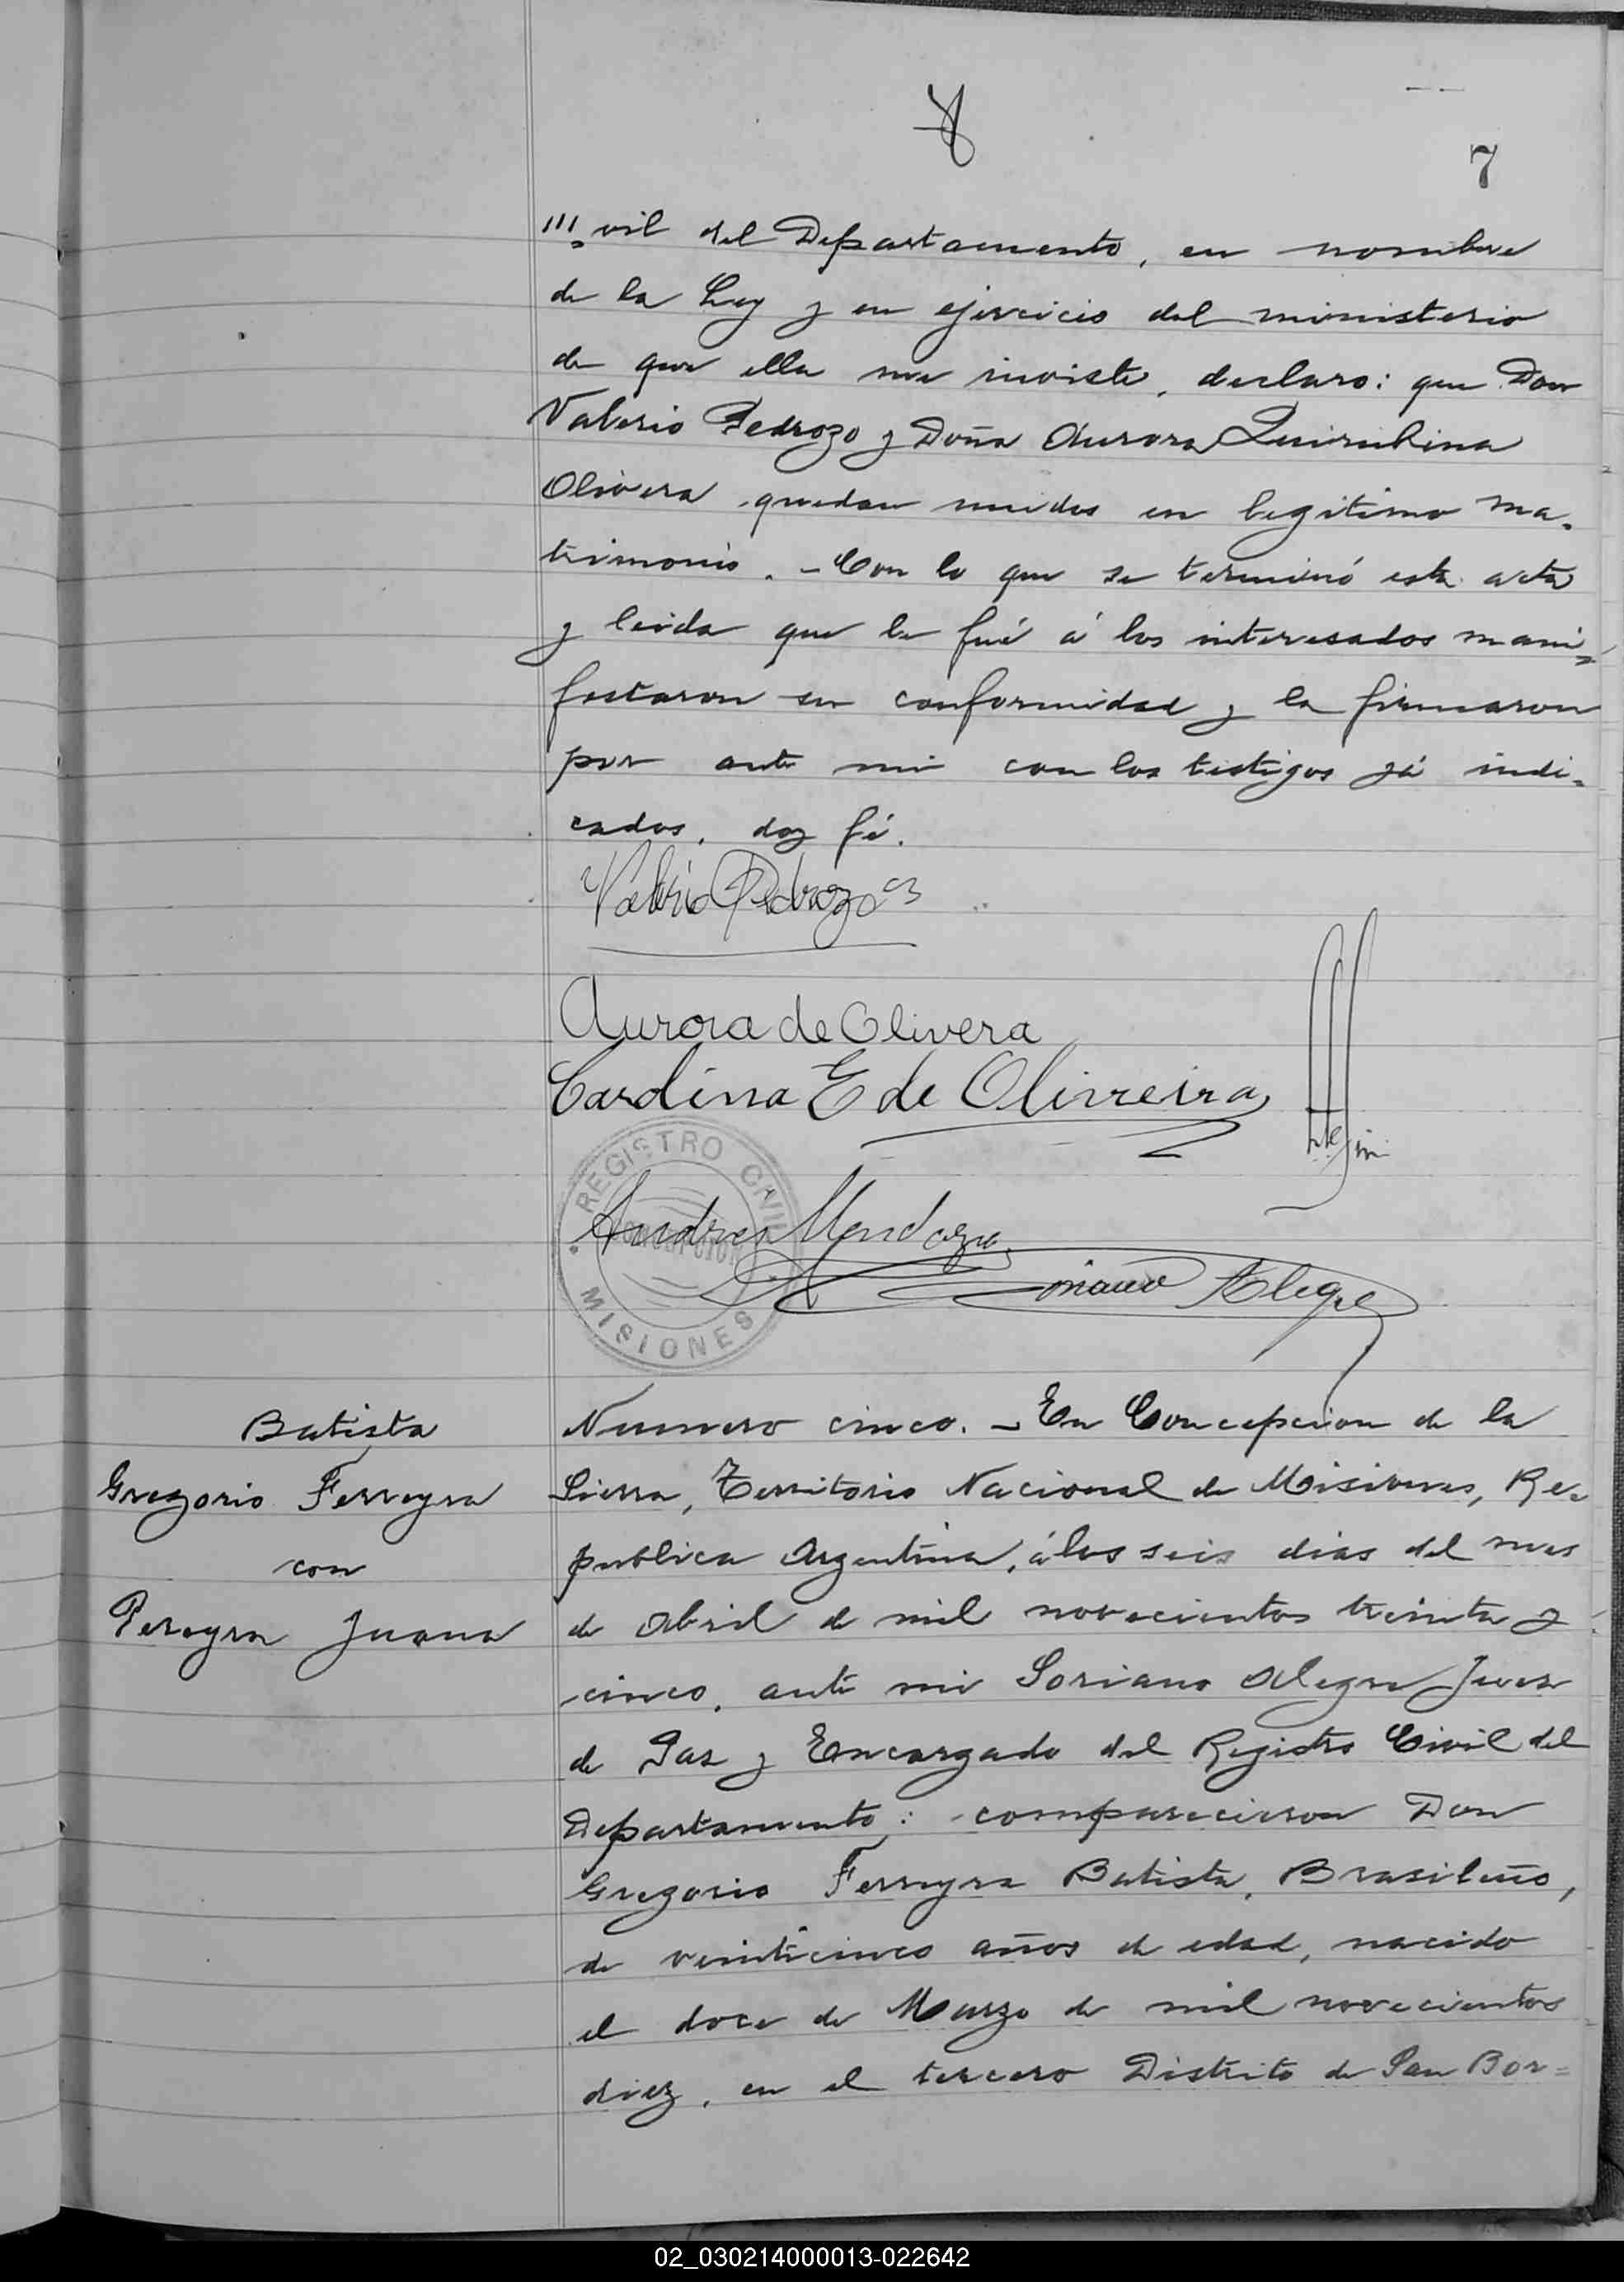 8
7
"'. vil del Departamento, en nombre
de la Ley y en ejercicio del ministerio
de que ella me inviste, declaro: que Don
Valerio Pedrozo y Doña Aurora Quirubina
Olivera quedan unidos en legitimo ma-
trimonio. - Con lo que se terminó esta acta
y leida que le fué á los interesados mani-
festaron su conformidad y la firmaron
por ante mi con los testigos yá indi-
cados, doy fé.
Valerio Pedrozo
Aurora de Olivera
Cardina E de Olivreira
REGISTRO CIVIL
CONCEPCION
MISIONES
Andres Mendoza
Soriano Alegre
Batista
Gregorio Ferreyra
con
Pereyra Juana
Numero cinco. - En Concepcion de la
Sierra, Territorio Nacional de Misiones, Re-
publica Argentina, á los seis dias del mes
de Abril de mil novecientos treinta y
cinco, ante mi Soriano Alegre Juez
de Paz y Encargado del Registro Civil del
Departamento: comparecieron Don
Gregorio Ferreyra Batista, Brasileño,
de veinticinco años de edad, nacido
el doce de Marzo de mil novecientos
diez, en el tercero Distrito de San Bor=
02_030214000013-022642